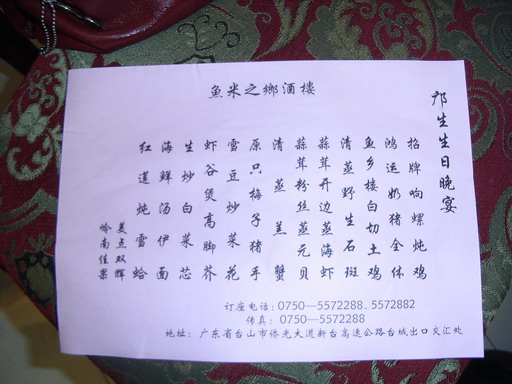 鱼米之鄉酒楼
邝生生日晚宴
招牌响螺炖鸡
鸿运奶猪全体
鱼乡楼白切土鸡
清蒸野生石斑
蒜茸开边蒸海虾
蒜茸粉丝蒸元贝
清蒸羔蟹
原只梅子猪手
雪豆炒菜花
虾谷煲高脚芥
生炒白菜芯
海鲜汤伊面
红莲炖雪蛤
美点双辉
岭南佳果
订座电话:0750—5572288、5572882
传真:0750—5572288
地址:广东省台山市侨光大道新台高速公路台城出口交汇处